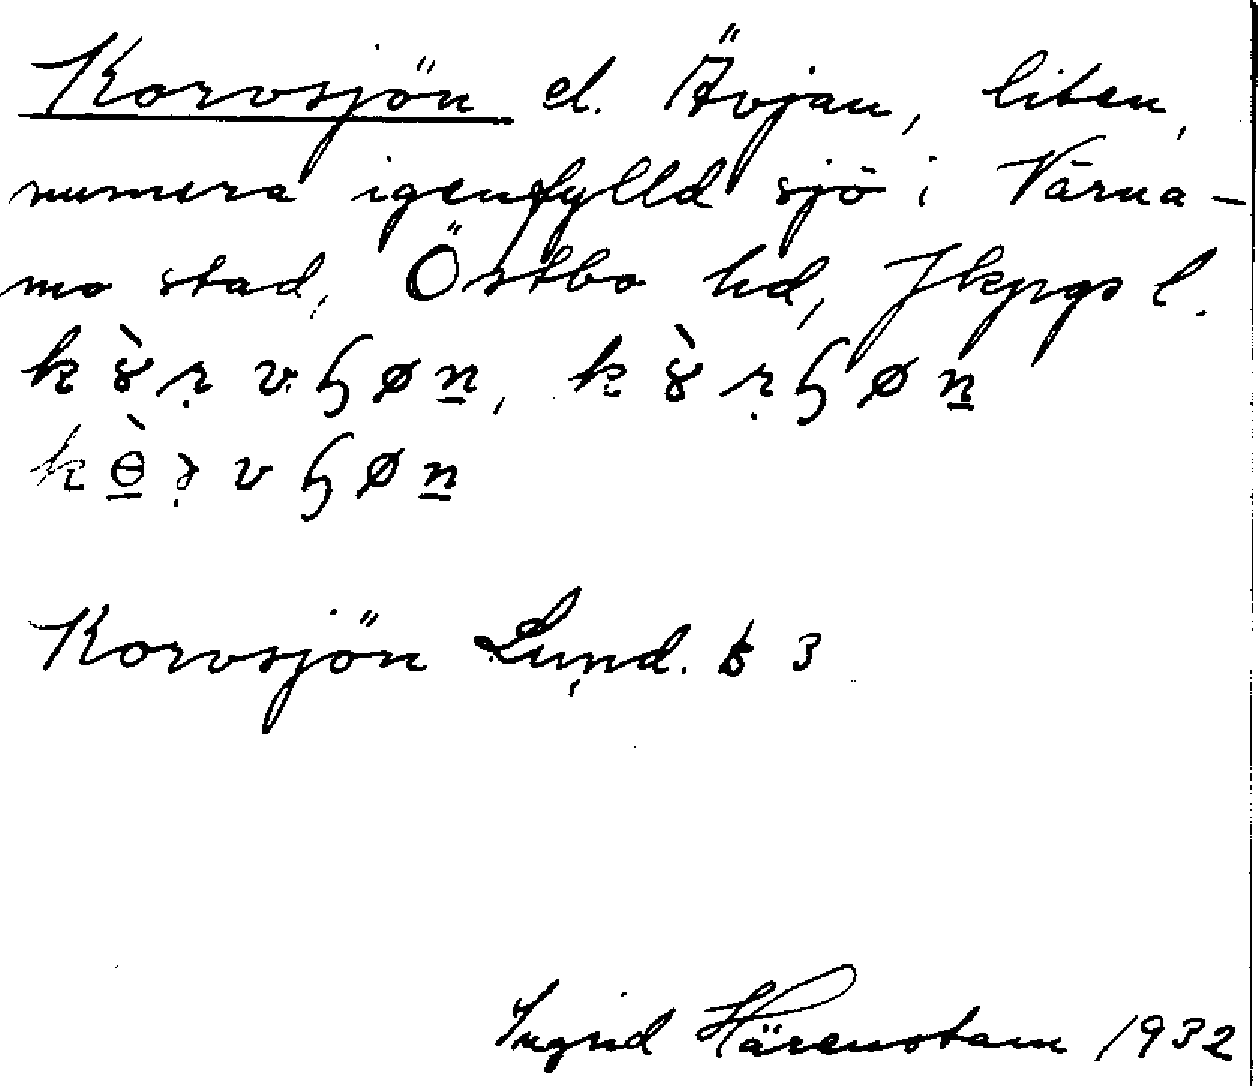 Korvsjön el. Ävjan, liten,
numera igenfylld sjö i Värna-
mo stad, Östbo hd, Jkpgs l.
kɤ̀ṛvɧøn̲, kɤ̀ṛɧøn̲
kɵ̲̀ṛvɧøn̲
Korvsjön Lund. 3
Ingrid Härenstam 1932